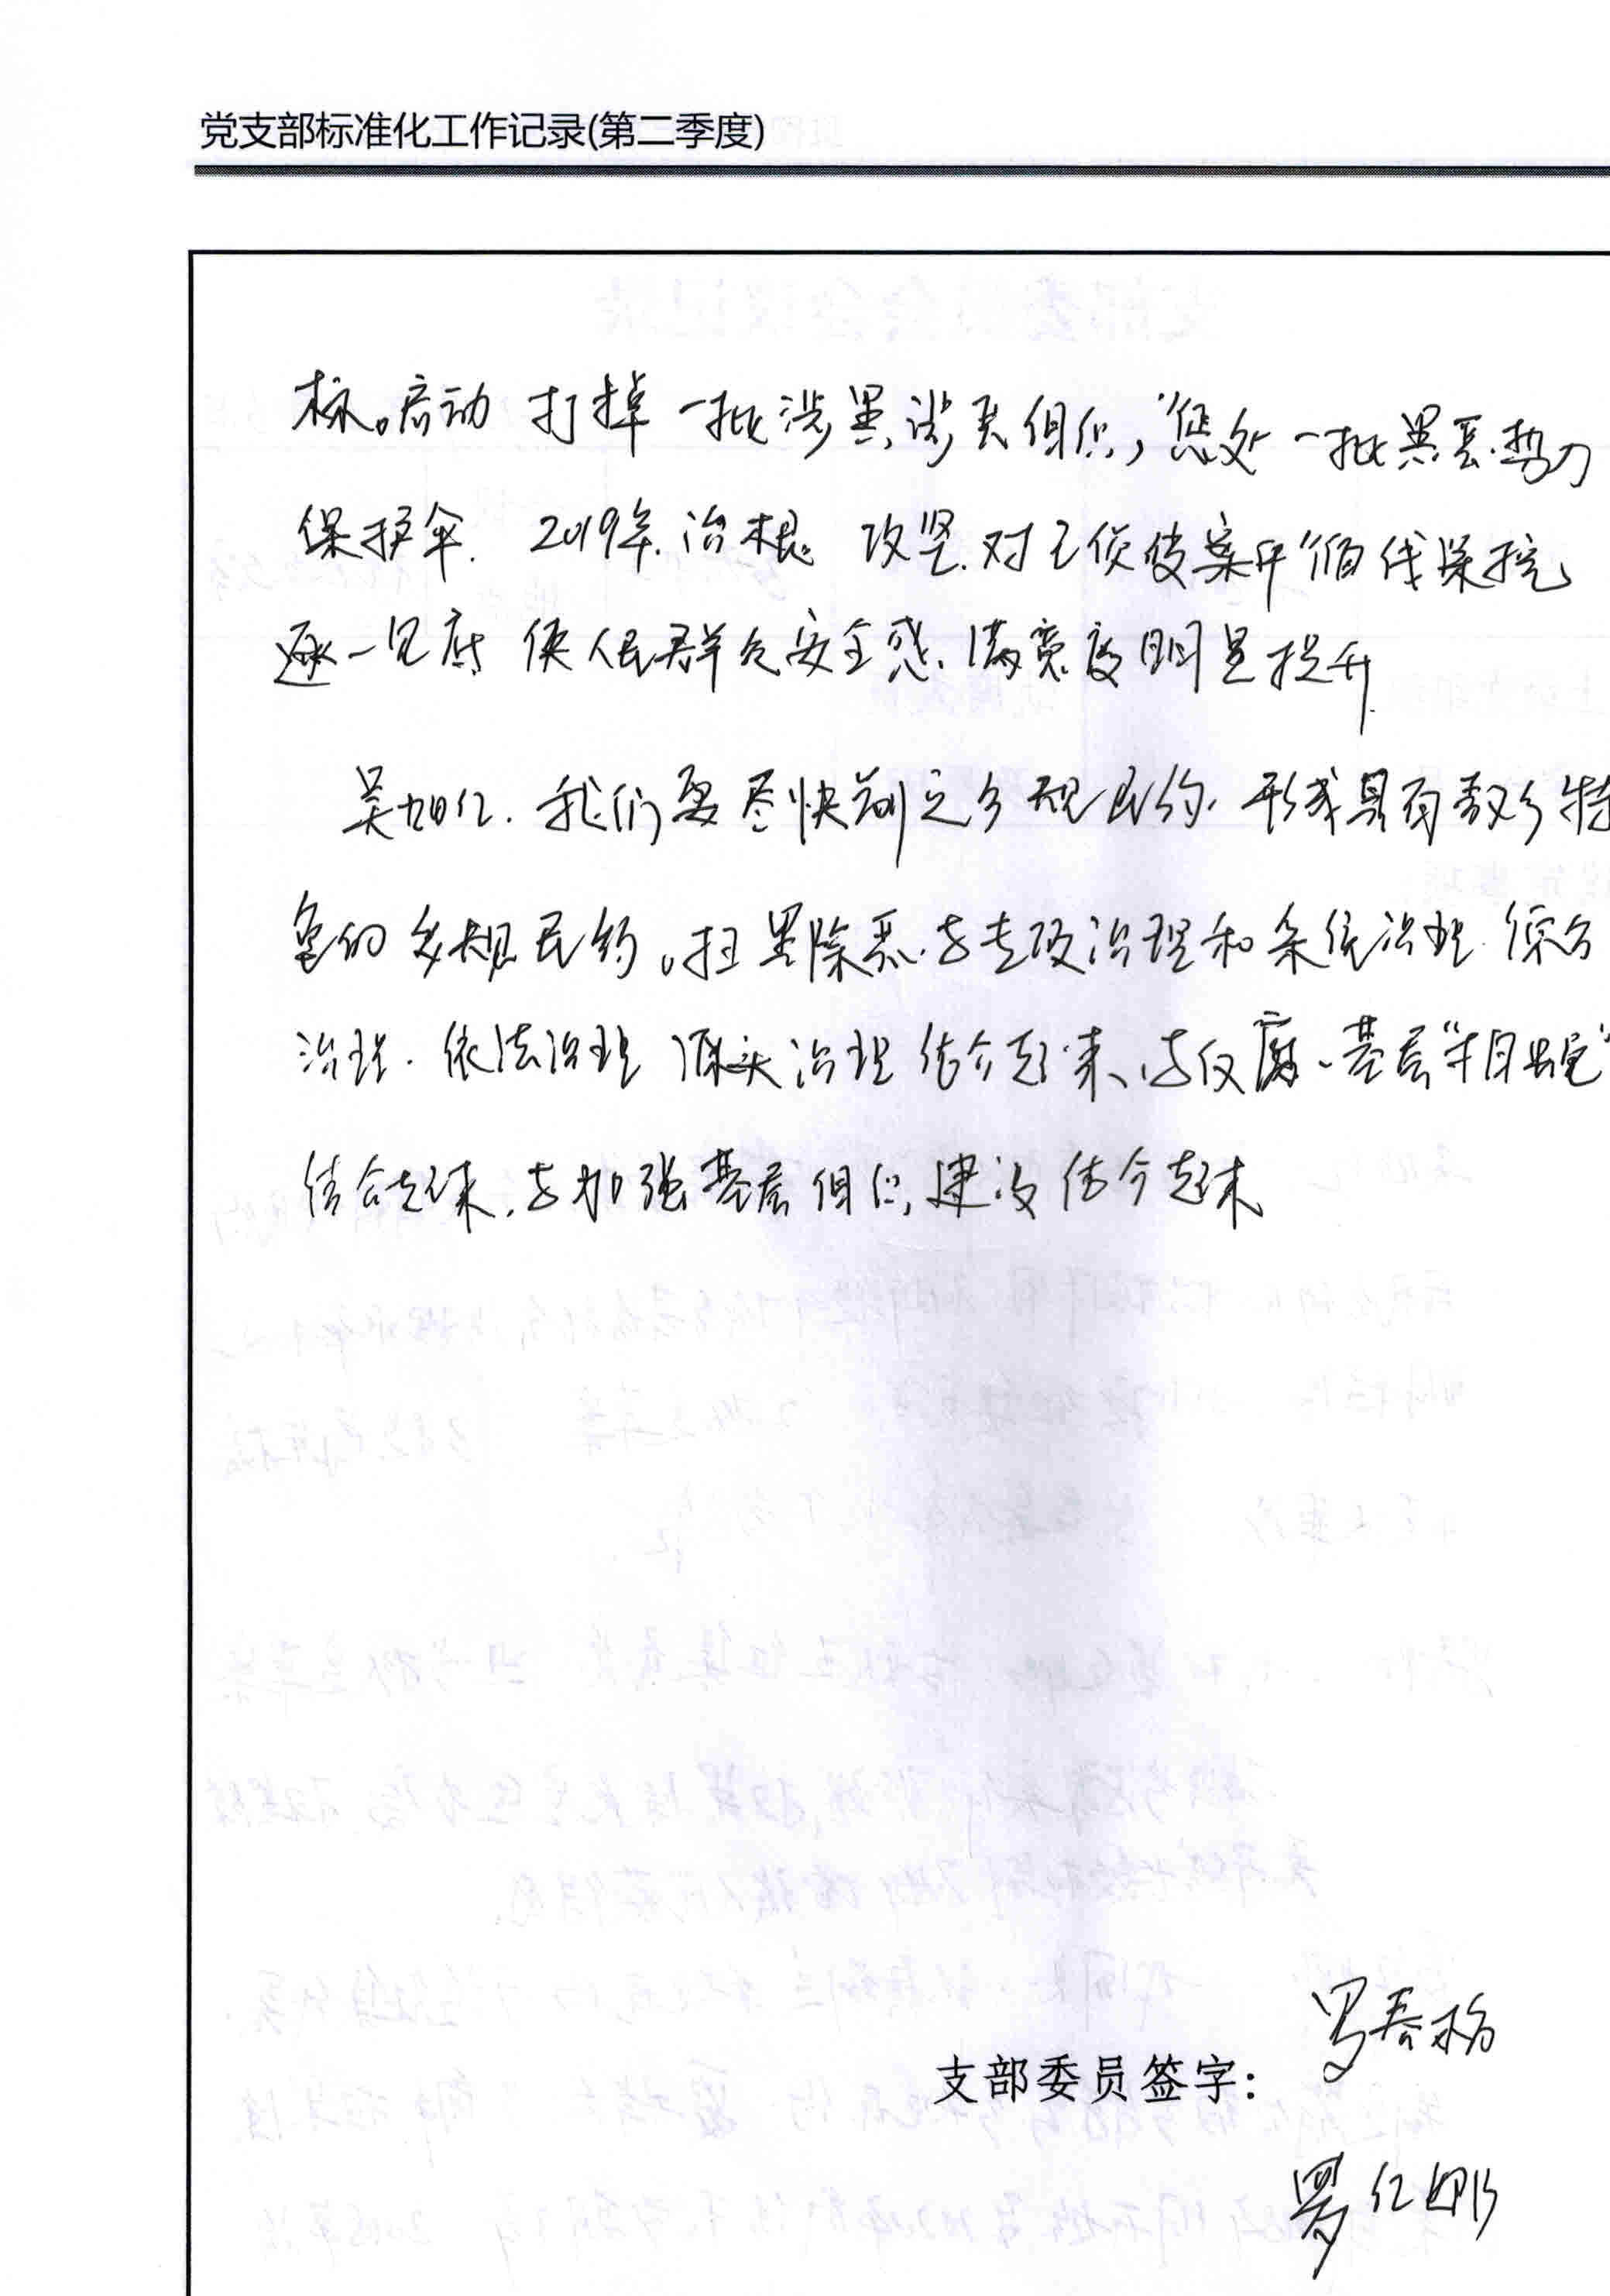 党支部标准化工作记录(第二季度)
标。启动 打掉一批涉黑涉恶组织,惩处一批黑恶势力
保护伞. 2019年.治根 攻坚.对已侦破案件循线深挖
逐一见底 使人民群众安全感、满意度明显提升.
吴加仁.我们要尽快制定乡规民约.形成具有我乡特
色的乡规民约。扫黑除恶.与专项治理和系统治理.综合
治理.依法治理 源头治理结合起来、与反腐、基层"
结合起来.与加强基层组织建设结合起来
罗春
支部委员签字:
罗红娜